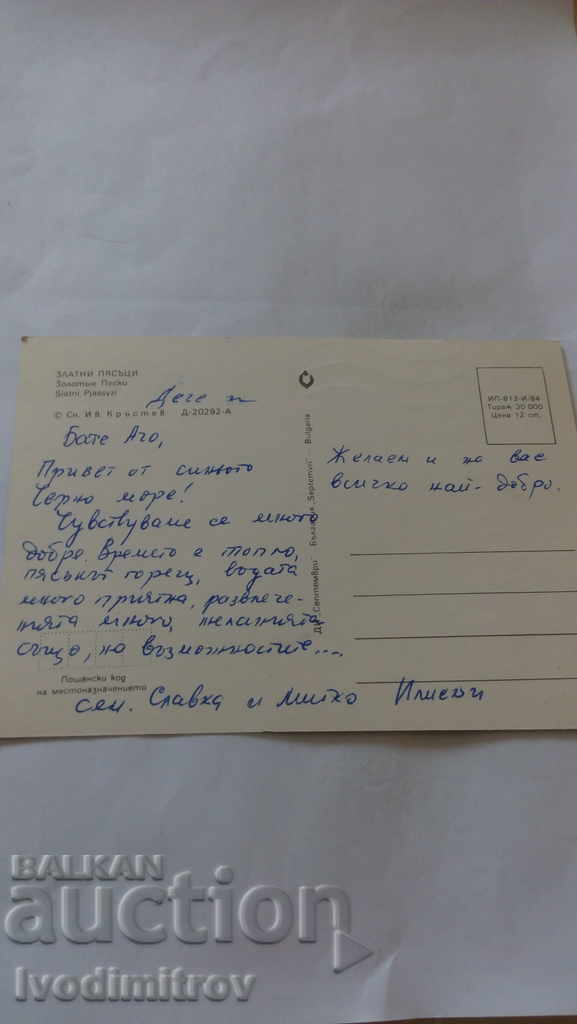 ЗЛАТНИ ПЯСЪЦИ
Золотые Пески
Slatni Pjassyzi
© Сн. Ив. Кръстев Д-20292-А
Бате Ачо,
Привет от синьото
Черно море!
Чувствуваме се много
добре. Времето е топло,
пясъкът горещ, водата
много приятна, развлече-
нията много, желанията
също, но възможностите....
Пощенски код
на местоназначението
сем. Славка и Митко Илиеви
ДИ „Септември" — България „Septemvri" — Bulgaria
ИП-813-И/84
Тираж 20 000
Цена 12 ст.
Желаем и на вас
всичко най-добро.
BALKAN
auction
Ivodimitrov